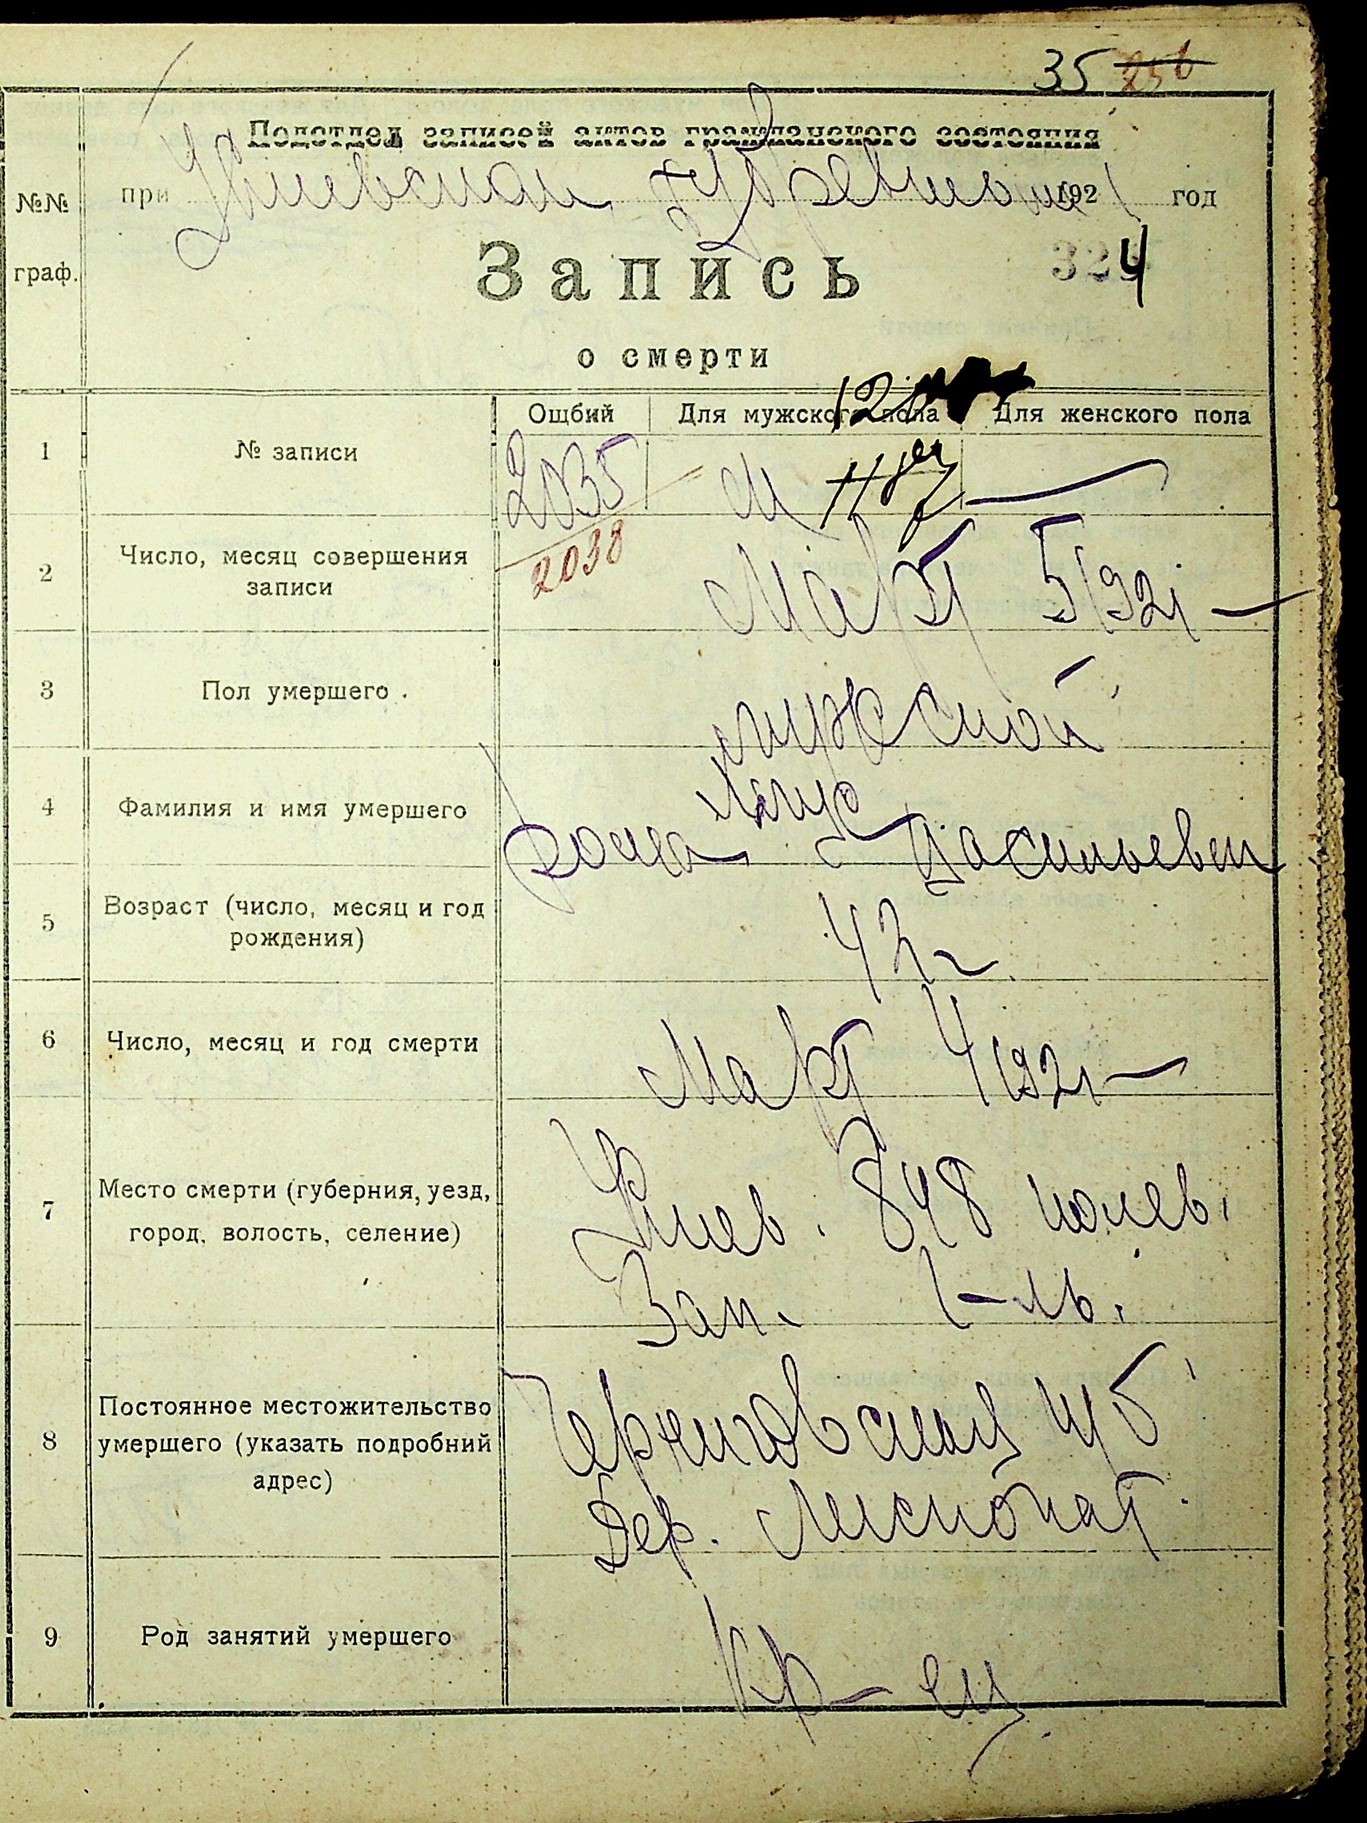 35 256
Подотдел записей актов гражданского состояния
при Киевском Губревкоме 1921 год
№№
граф.
324
Запись
о смерти
Ощбий Для мужского пола Для женского пола
12
1 № записи 2035 М —
2038
2 Число, месяц совершения
записи
Март 5 1921 —
3 Пол умершего. мужской
4 Фамилия и имя умершего
Васильевич
5 Возраст (число, месяц и год
рождения)
42 г.
6 Число, месяц и год смерти Март 4 1921 —
7 Место смерти (губерния, уезд,
город, волость, селение)
Киев. 848 полев.
Зап. г-ль.
8 Постоянное местожительство
умершего (указать подробний
адрес)
Черниговской губ
Дер.
9 Род занятий умершего Кр-ец